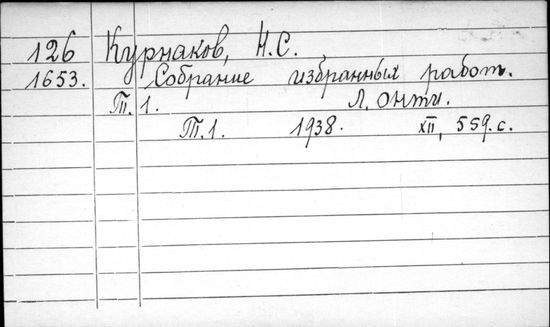 126 Курнаков, Н.С.
1653. Собрание избранных работ.
Т. 1. Л. ОНТИ.
Т. 1. 1938. XII, 559. с.